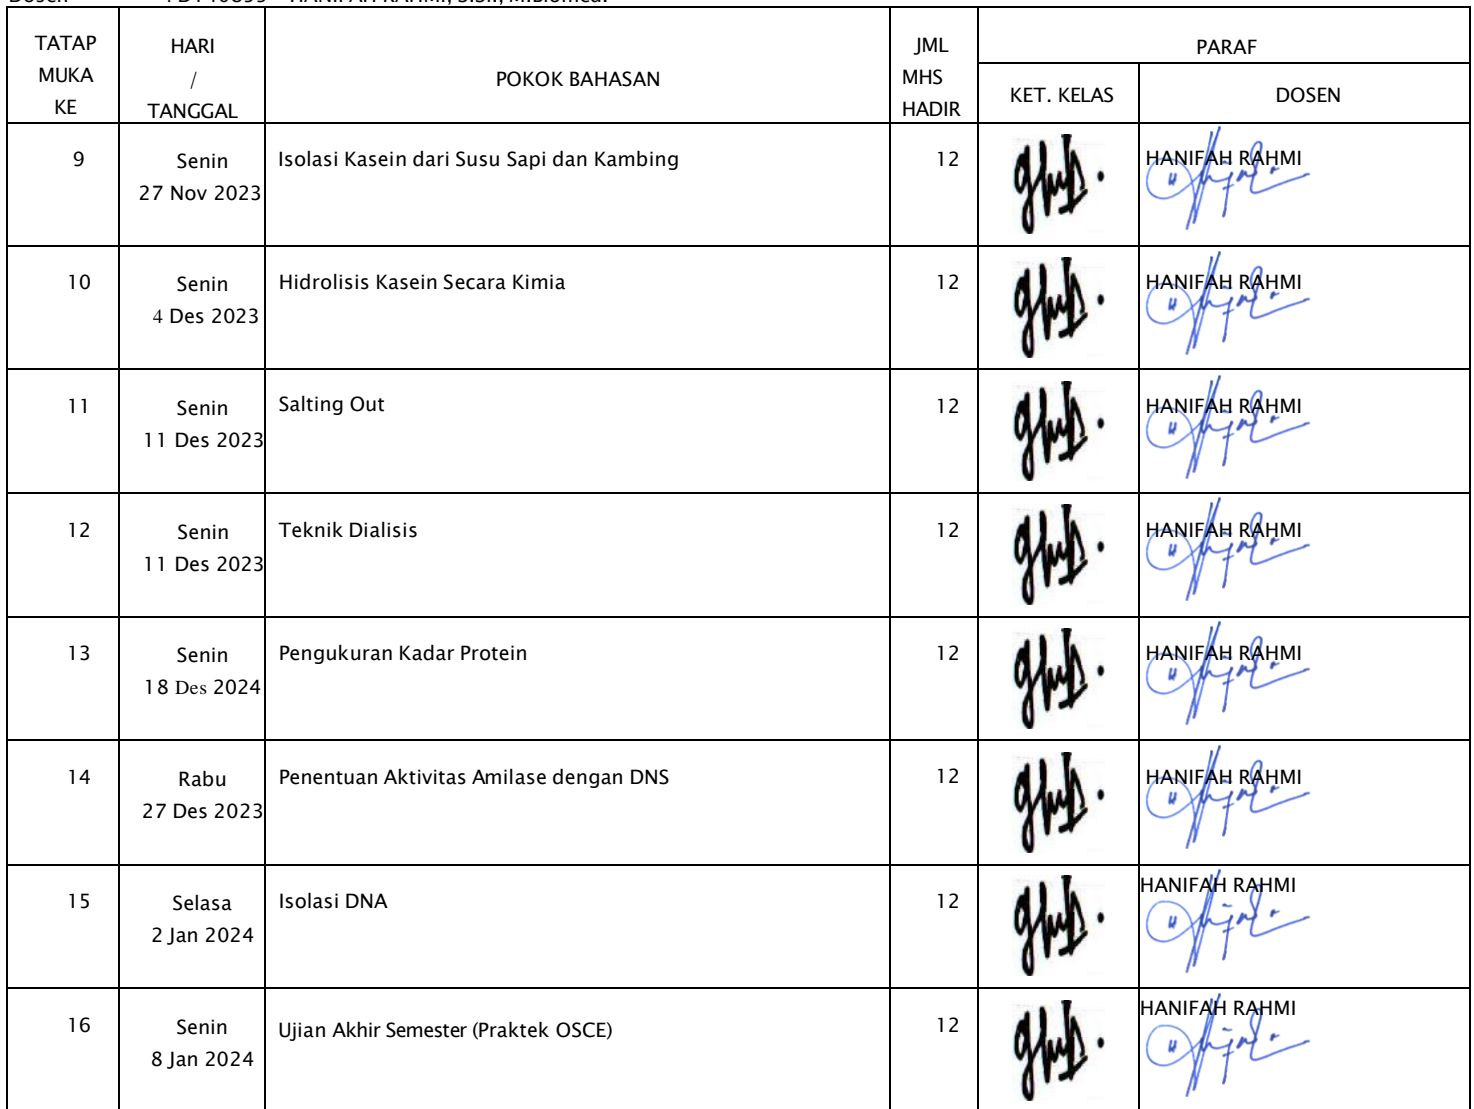 TATAP MUKA KE
HARI / TANGGAL
POKOK BAHASAN
JML MHS HADIR
PARAF
KET. KELAS
DOSEN
9
Senin
27 Nov 2023
Isolasi Kasein dari Susu Sapi dan Kambing
12
HANIFAH RAHMI
10
Senin
4 Des 2023
Hidrolisis Kasein Secara Kimia
12
HANIFAH RAHMI
11
Senin
11 Des 2023
Salting Out
12
HANIFAH RAHMI
12
Senin
11 Des 2023
Teknik Dialisis
12
HANIFAH RAHMI
13
Senin
18 Des 2024
Pengukuran Kadar Protein
12
HANIFAH RAHMI
14
Rabu
27 Des 2023
Penentuan Aktivitas Amilase dengan DNS
12
HANIFAH RAHMI
15
Selasa
2 Jan 2024
Isolasi DNA
12
HANIFAH RAHMI
16
Senin
8 Jan 2024
Ujian Akhir Semester (Praktek OSCE)
12
HANIFAH RAHMI